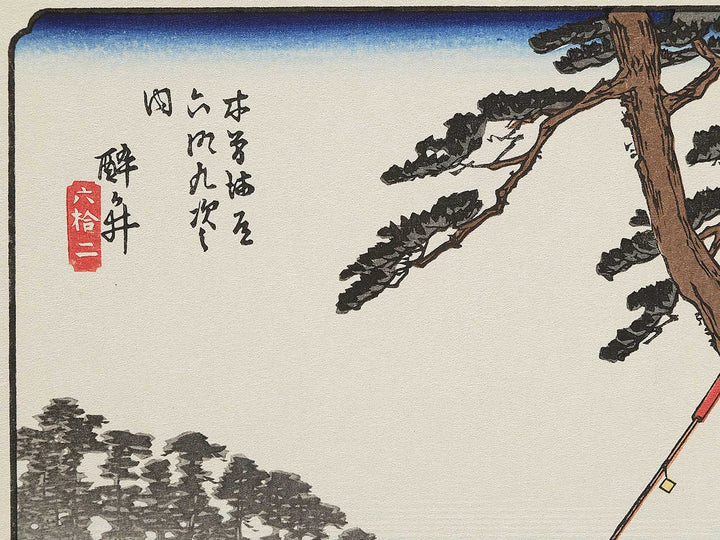 木曽海道
六拾九次之
内
酔ヶ井
六拾二